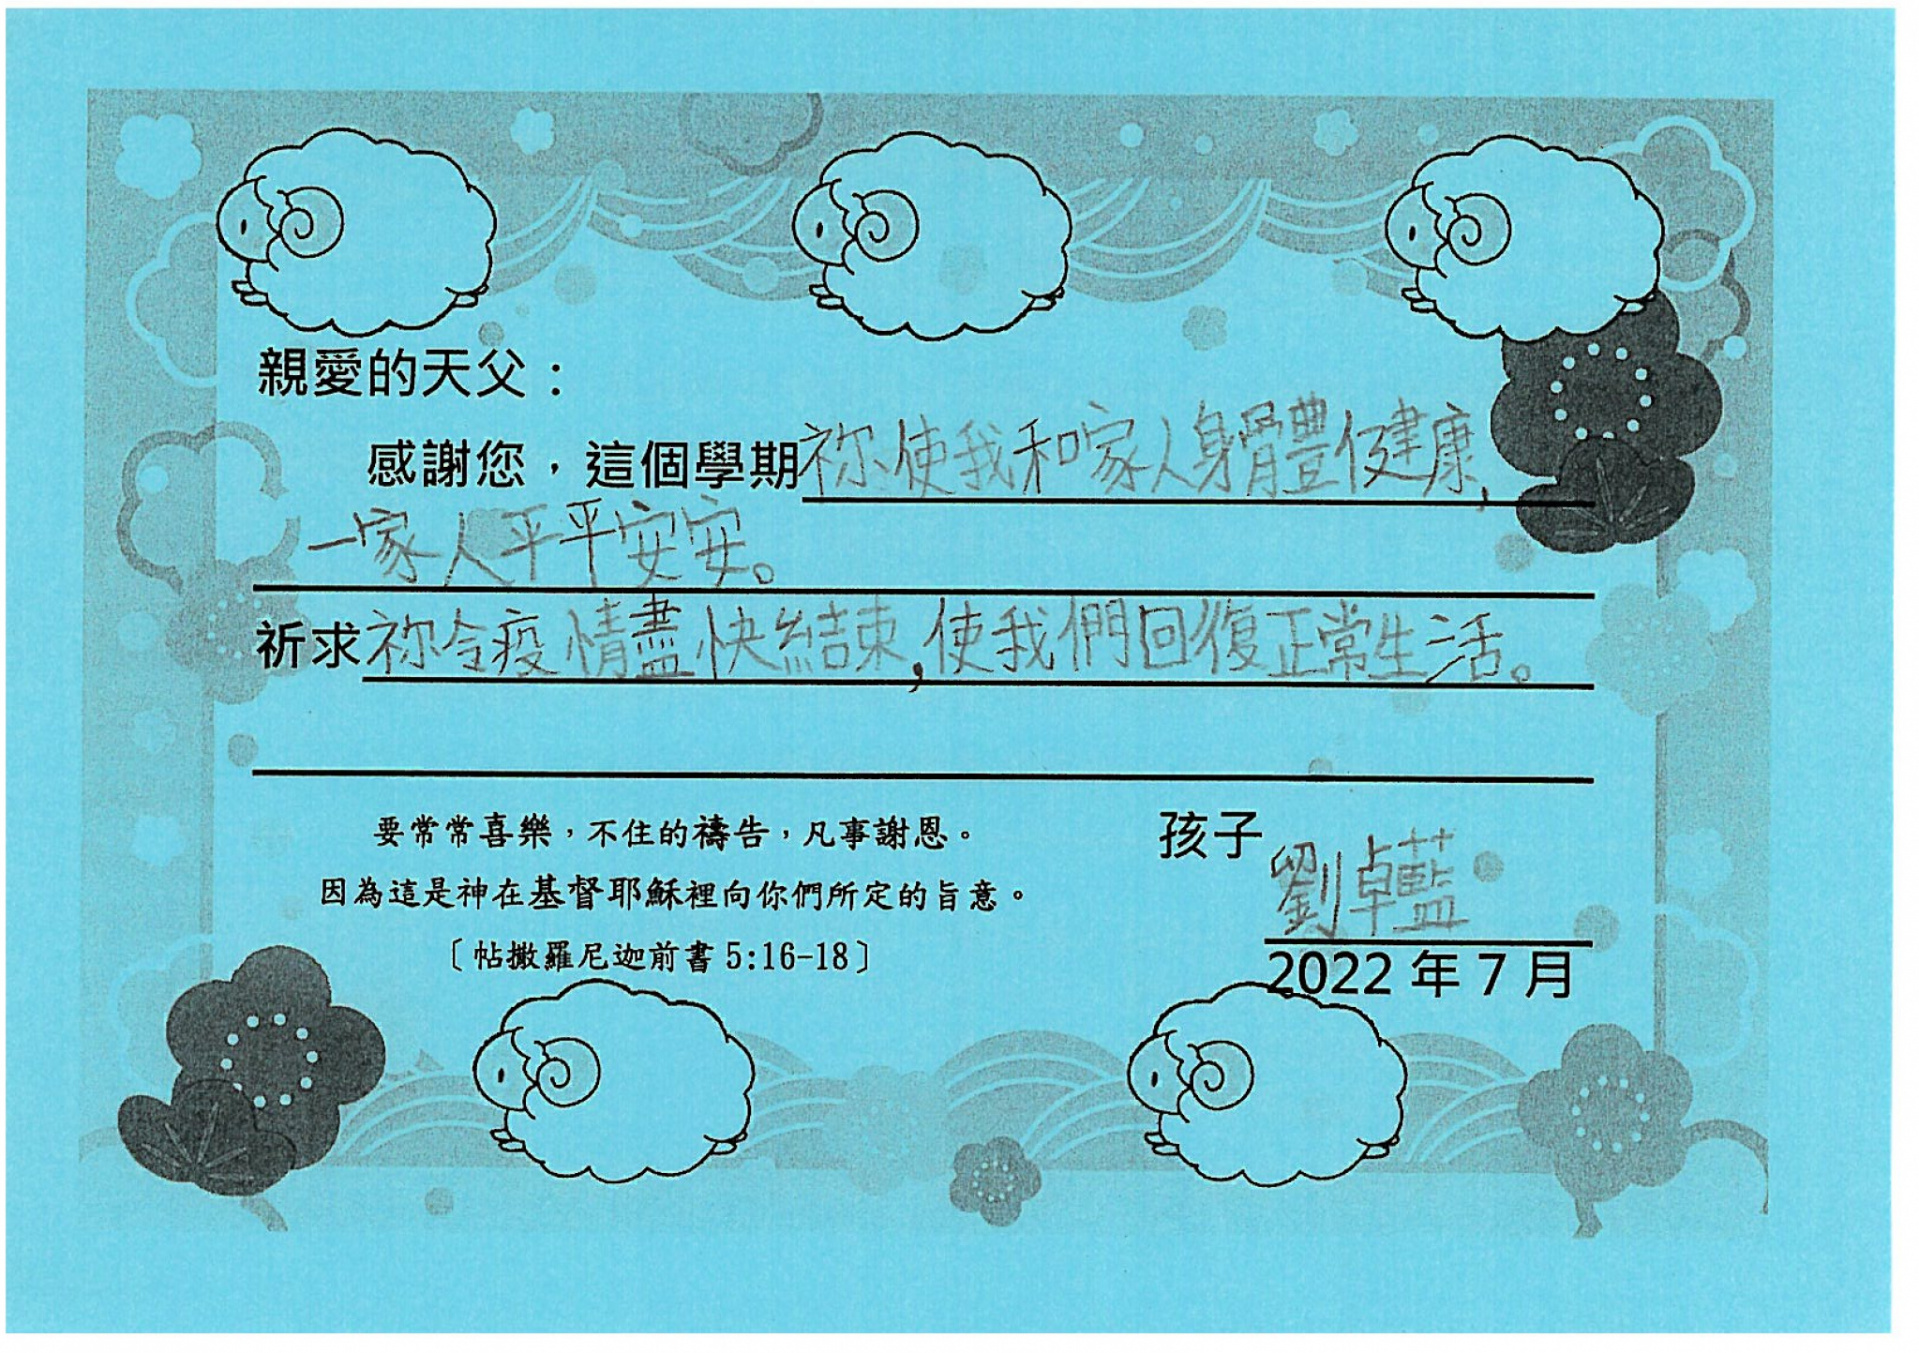 親愛的天父：
感謝您，這個學期祢使我和家人身體健康，
一家人平平安安。
祈求祢令疫情盡快結束，使我們回復正常生活。
要常常喜樂，不住的禱告，凡事謝恩。
因為這是神在基督耶穌裡向你們所定的旨意。
〔帖撒羅尼迦前書 5:16-18〕
孩子 劉卓藍
2022 年 7 月